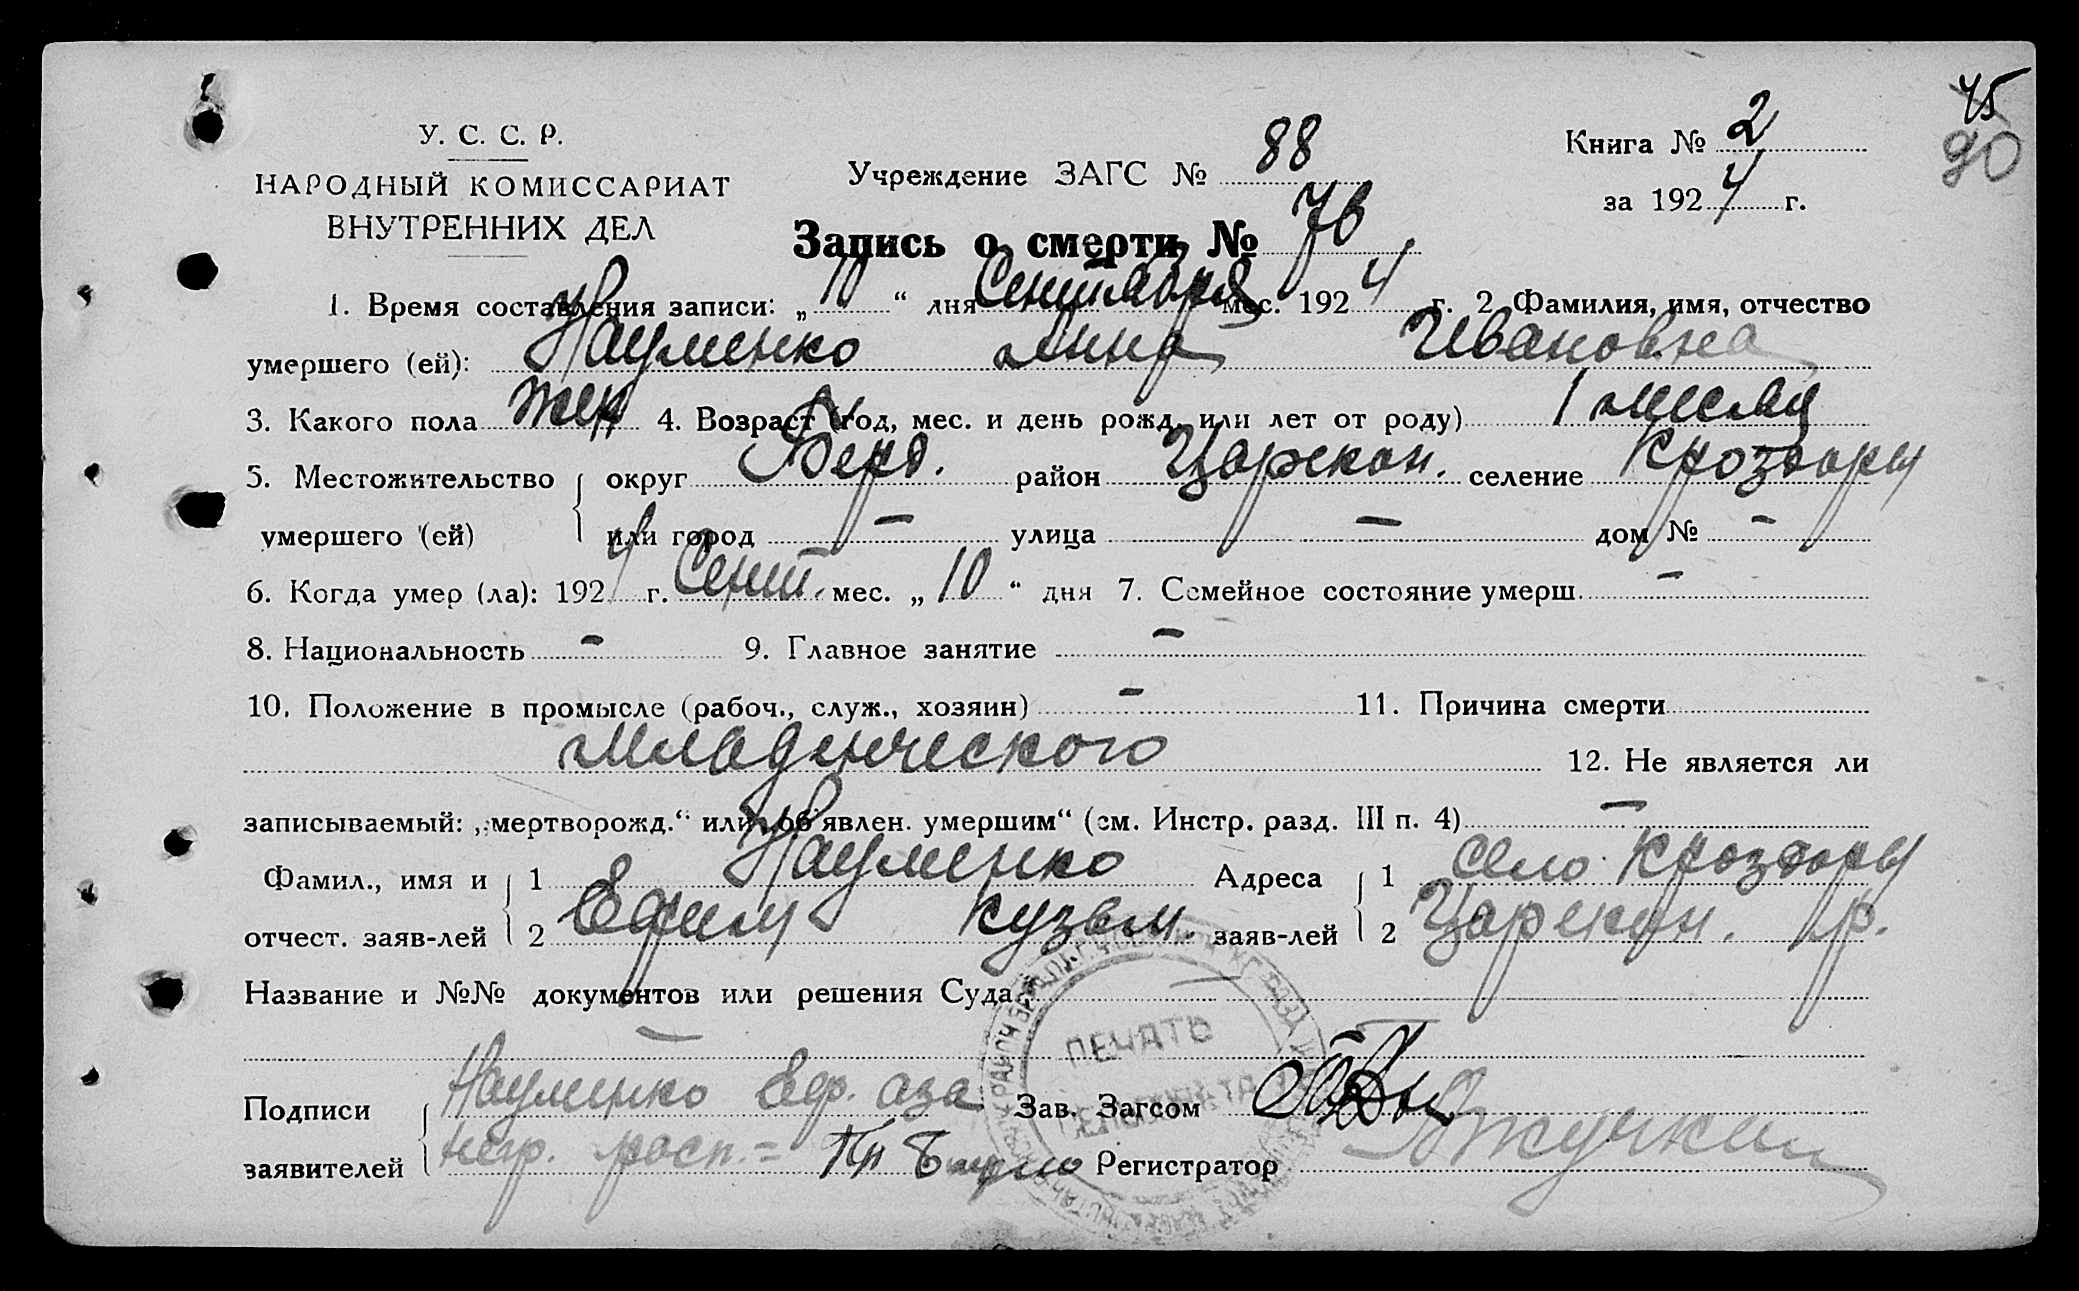 45
90
У. С. С. Р.
НАРОДНЫЙ КОМИССАРИАТ
ВНУТРЕННИХ ДЕЛ
Учреждение ЗАГС № 88
Книга № 2
за 1924 г.
Запись о смерти № 76
1. Время составления записи: „10“ дня Сентября мес. 1924 г. 2. Фамилия, имя, отчество
умершего (ей): Науменко Анна Ивановна
3. Какого пола жен 4. Возраст (год, мес. и день рожд. или лет от роду) 1 месяц
5. Местожительство округ Берд. район Царекон. селение
умершего (ей) или город – улица – дом № –
6. Когда умер (ла): 1924 г. Сент. мес. „10“ дня 7. Семейное состояние умерш. –
8. Национальность – 9. Главное занятие –
10. Положение в промысле (рабоч., служ., хозяин) – 11. Причина смерти
младенческого 12. Не является ли
записываемый: „мертворожд.“ или „об'явлен. умершим“ (см. Инстр. разд. III п. 4) –
Фамил., имя и 1 Науменко Адреса 1 село
отчест. заяв-лей 2 Ефим Кузьм. заяв-лей 2 Царекон. р.
Название и №№ документов или решения Суда –
–
ПЕЧАТЬ
Подписи Науменко Еф. а за Зав. Загсом
заявителей негр. росп. = Регистратор